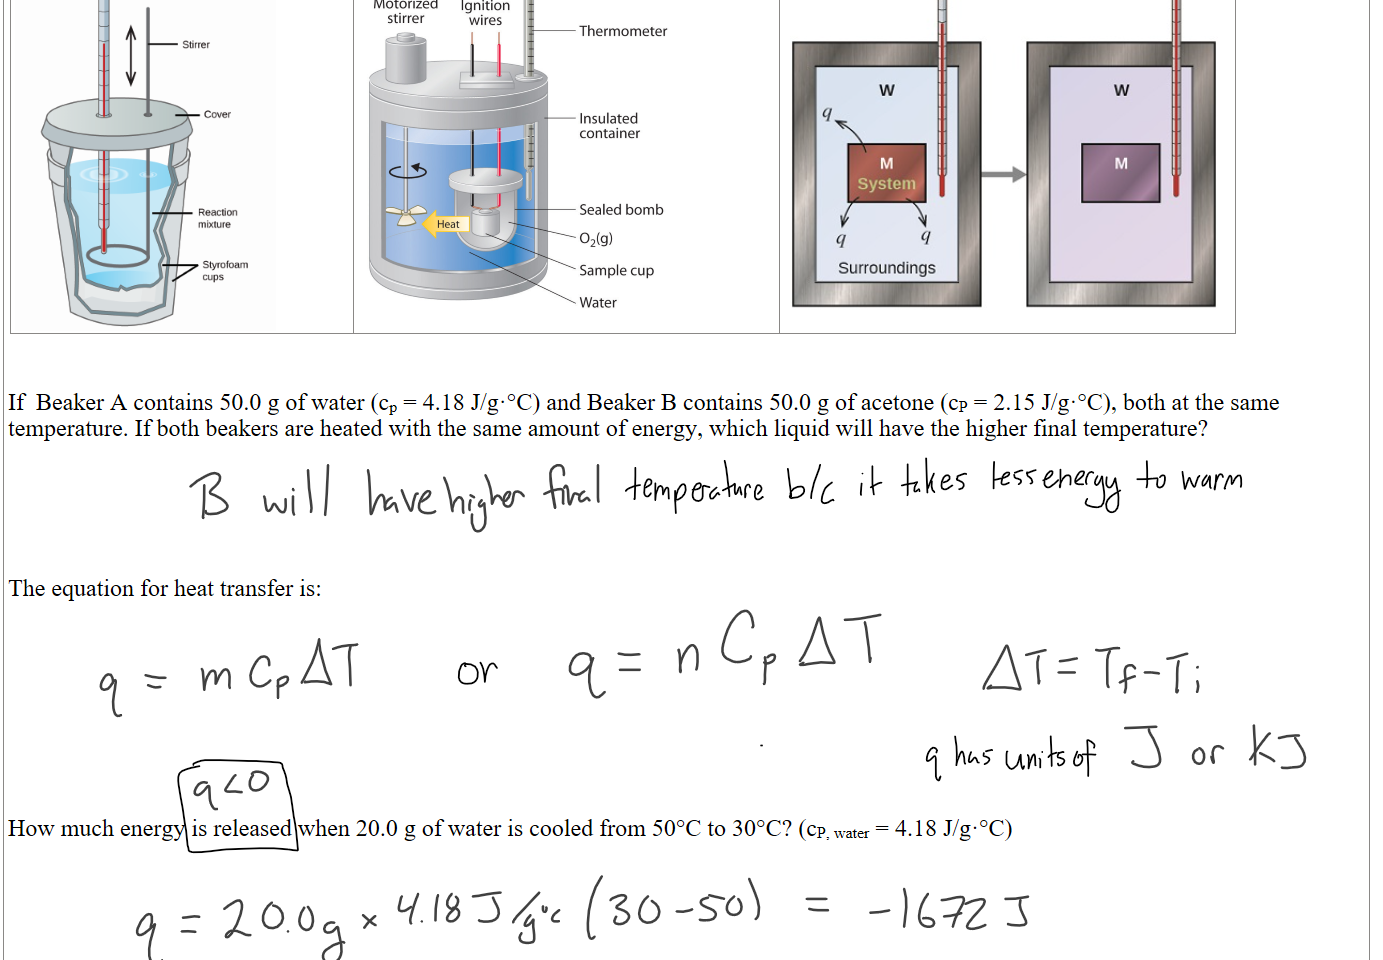 Stirrer
Cover
Reaction
mixture
Styrofoam
cups
Motorized
stirrer
Ignition
wires
Thermometer
Insulated
container
Sealed bomb
O₂(g)
Sample cup
Water
Heat
W
q
M
System
q
q
Surroundings
W
M
If Beaker A contains 50.0 g of water (cₚ = 4.18 J/g·°C) and Beaker B contains 50.0 g of acetone (cP = 2.15 J/g·°C), both at the same
temperature. If both beakers are heated with the same amount of energy, which liquid will have the higher final temperature?
B will have higher final temperature b/c it takes less energy to warm
The equation for heat transfer is:
q = m Cp ΔT or q = n Cp ΔT ΔT = Tf - Ti
q has units of J or kJ
q < 0
How much energy is released when 20.0 g of water is cooled from 50°C to 30°C? (cP, water = 4.18 J/g·°C)
q = 20.0g × 4.18 J/g°c (30 - 50) = -1672 J